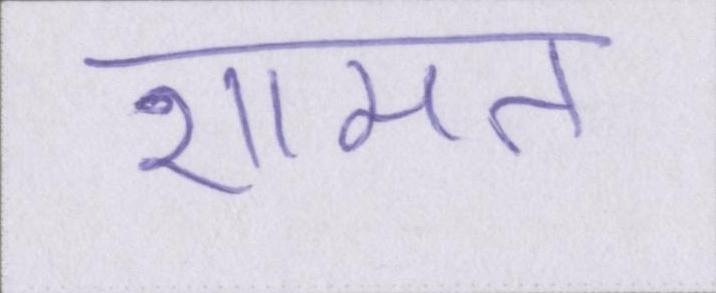 शामत